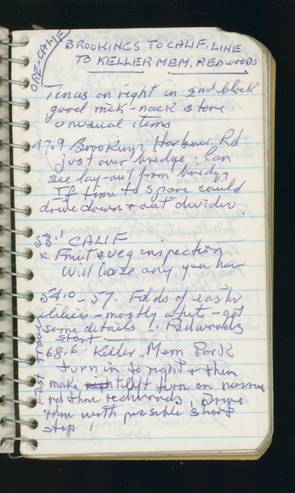 ORE-CALIF
BROOKINGS TO CALIF. LINE
TO KELLER MEM. REDWOODS
on right in 2nd block
good nick-nack store
unusual items
47.9 Brookings Harbour Rd
just over bridge. Can
see lay-out from bridge
If time to spare could
drive down + out divider.
53.1 CALIF
x Fruit + veg inspection
Will lose any you have
54.0 - 57. Fields of easter
lilies - mostly white - got
some details !. Redwoods
start
68.6 Keller Mem Park
turn in to right + then
make left turn on narrow
rd thru redwoods. Drive
thru with possible short
stop !